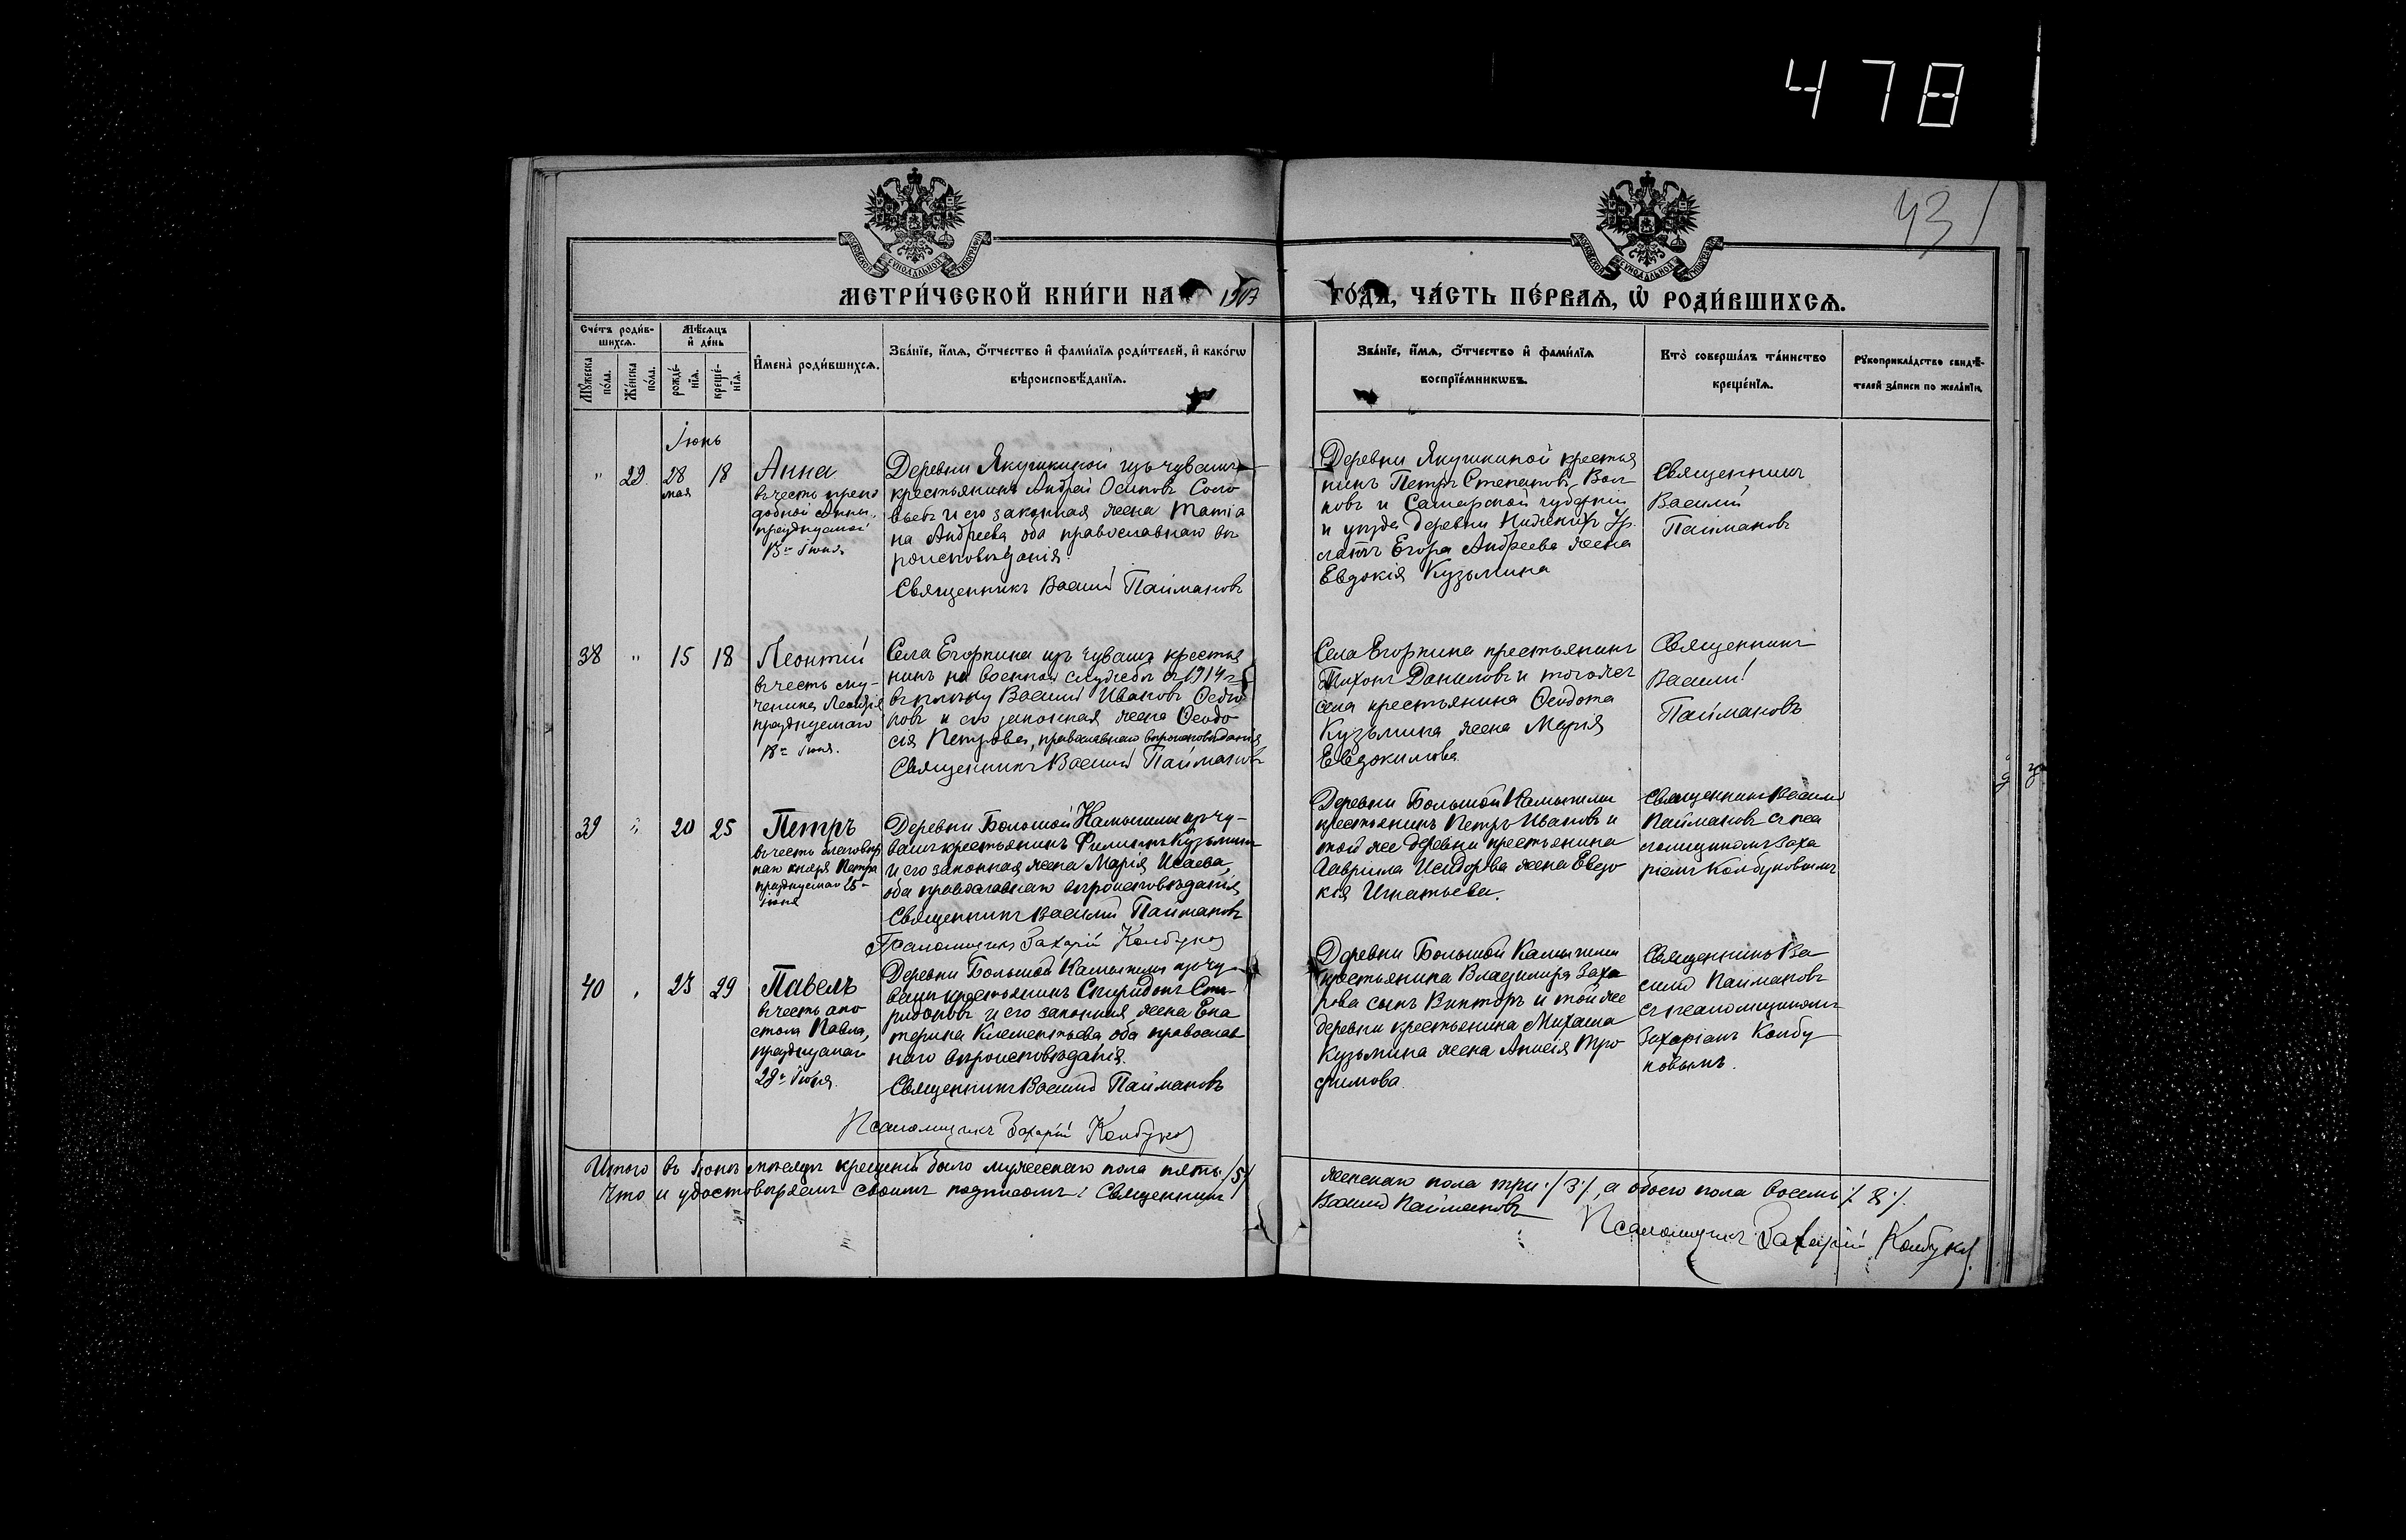 478
43
МОСКОВСКОЙ СѴНОДАЛЬНОЙ ТИПОГРАФІИ
МОСКОВСКОЙ СѴНОДАЛЬНОЙ ТИПОГРАФІИ
МЕТРИ́ЧЕСКОЙ КНИ́ГИ НА 1917
ГО́ДА, ЧА́СТЬ ПЕ́РВАѦ, Ѡ҆ РОДИ́ВШИХСѦ.
Сче́тъ роди́в-
шихсѧ.
Мꙋ́жеска
по́ла.
Же́нска
по́ла.
Мѣ́сѧцъ
и҆ де́нь
рожде́-
нїѧ.
креще́-
нїѧ.
И҆мена̀ роди́вшихсѧ.
Зва́нїе, и҆́мѧ, ѻ҆́тчество и҆ фами́лїѧ роди́телей, и҆ како́гѡ
вѣроисповѣ́данїѧ.
Зва́нїе, и҆́мѧ, ѻ҆́тчество и҆ фами́лїѧ
воспрїе́мникѡвъ.
Кто̀ соверша́лъ та́инство
креще́нїѧ.
Рꙋкоприкла́дство свидѣ́-
телей за́писи по жела́нїю.
Іюнь
" 29. 28 18
мая
Анна
въ честь препо
добной Анны,
празднуемой
13го Іюня
Деревни Якушкиной изъ чувашъ
крестьянинъ Андрей Осиповъ Соло
вьевъ и его законная жена Татіа
на Андреева оба православнаго вѣ
роисповѣданія
Священникъ Василій Паймановъ
Деревни Якушкиной крестья
нинъ Петръ Степановъ Вол
ковъ и Самарской губерніи
и уѣзда деревни Нижнихъ
Егора Андреева жена
Евдокія Кузьмина
Священникъ
Василій
Паймановъ
38 " 15 18
Леонтій
въ честь му-
ченика Леонтія
празднуемаго
18го Іюня.
Села Егоркина изъ чувашъ крестья
нинъ на военной службѣ съ 1914 г.
въ плѣну Василій Ивановъ Ѳедо
ровъ и его законная жена Ѳеодо
сія Петрова, православнаго вѣроисповѣданія
Священникъ Василій Паймановъ
Села Егоркина крестьянинъ
Тихонъ Даниловъ и того же
села крестьянина Ѳеодота
Кузьмина жена Марія
Евдокимова
Священникъ
Василій
Паймановъ
39 " 20 25
Петръ
въ честь благовѣр
наго князя Петра
празднуемаго 25го
Іюня
Деревни Большой Камышлы изъ чу-
вашъ крестьянинъ Филиппъ Кузьминъ
и его законная жена Марія Исаева,
оба православнаго вѣроисповѣданія
Священникъ Василій Паймановъ
Псаломщикъ Захарій Колбуковъ
Деревни Большой Камышлы
крестьянинъ Петръ Ивановъ и
той же деревни крестьянина
Гавріила Исидорова жена Евдо
кія Игнатьева.
Священникъ Василій
Паймановъ съ пса
ломщикомъ Заха
ріемъ Колбуковымъ
40 " 23 29
Павелъ
въ честь апо
стола Павла,
празднуемаго
29го Іюня.
Деревни Большой Камышлы изъ чу
вашъ крестьянинъ Спиридонъ Спи-
ридоновъ и его законная жена Ека
терина Клементьева оба православ
наго вѣроисповѣданія.
Священникъ Василій Паймановъ
Псаломщикъ Захарій Колбуковъ
Деревни Большой Камышлы
крестьянина Владиміра Заха
рова сынъ Викторъ и той же
деревни крестьянина Михаила
Кузьмина жена Анисія Тро
фимова.
Священникъ Ва
силій Паймановъ
съ псаломщикомъ
Захаріемъ Колбу
ковымъ.
Итого въ Іюнѣ мѣсяцѣ крещеній было мужескаго пола пять /5/
женскаго пола три /3/, а обоего пола восемь /8/.
Что и удостовѣряемъ своимъ подписомъ: Священникъ
Василій Паймановъ
Псаломщикъ Захарій Колбуковъ